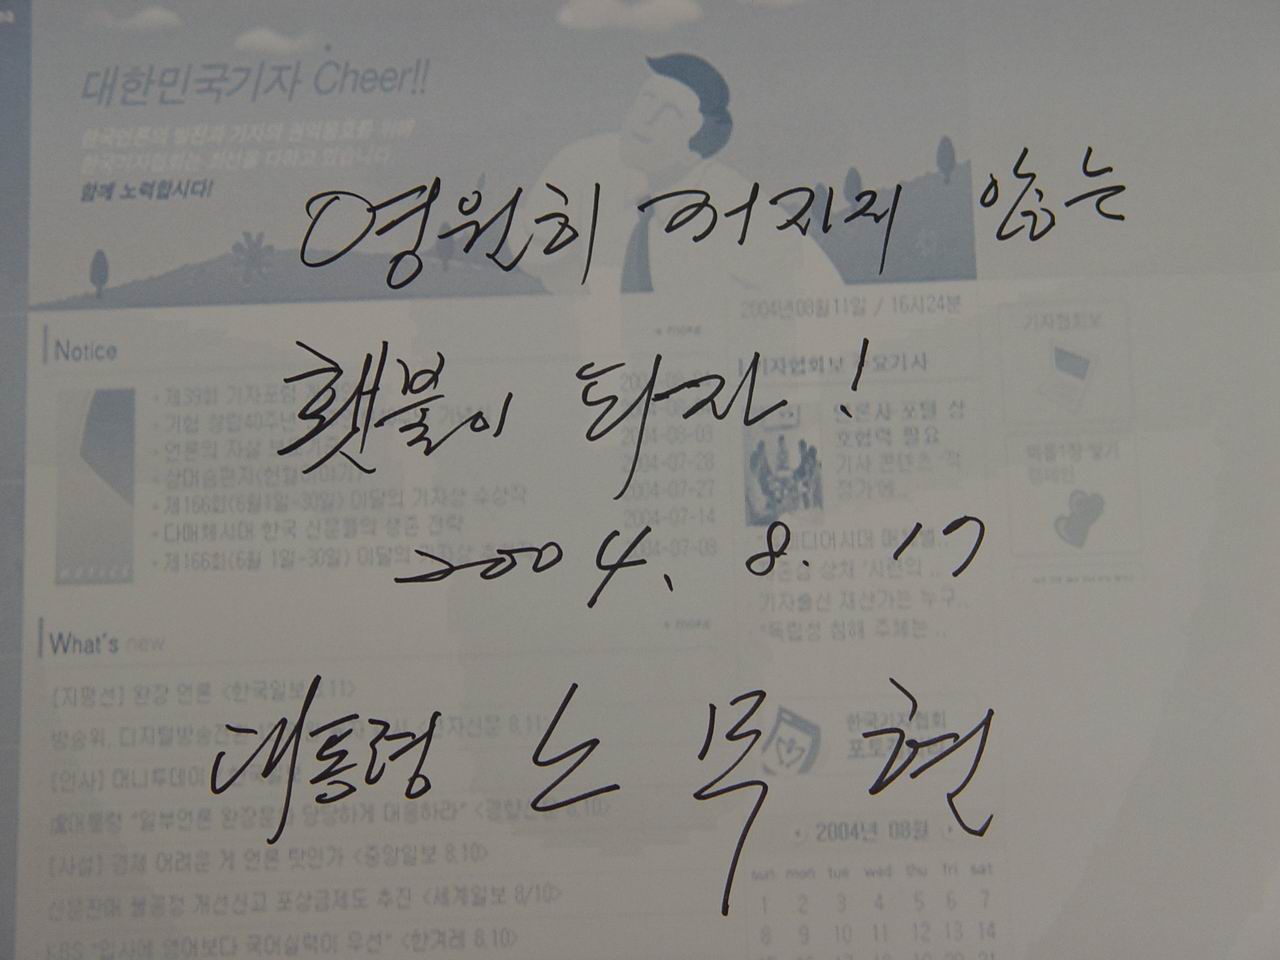 대한민국기자 Cheer!!
한국언론의 발전과 기자의 권익옹호를 위해
한국기자협회는 최선을 다하고 있습니다.
함께 노력합시다!
영원히 꺼지지 않는
횃불이 되자!
2004. 8. 17
대통령 노무현
2004년08월11일 / 16시24분
Notice
+ more
제39회 기자포럼
기협 창립40주년
언론의 자살
제166회(6월1일~30일) 이달의 기자상 수상작
다매체시대 한국 신문들의 생존 전략
제166회(6월 1일~30일) 이달의 기자상
04-08-03
2004-07-28
2004-07-27
2004-07-14
04-07-09
기자협회보 주요기사
언론사 포털 상
호협력 필요
기사 콘텐츠
기자출신 재산가는 누구..
"독립성 침해 주체는 ..
기자협회보
What's new
+ more
[지평선] 완장 언론 <한국일보 8.11>
방송위, 디지털방송전환
[인사] 머니투데이
盧대통령 "일부언론 완장문화 당당하게 대응하라" <경향신문 8.10>
[사설] 경제 어려운 게 언론 탓인가 <중앙일보 8.10>
신문판매 불공정 개선신고 포상금제도 추진 <세계일보 8/10>
KBS "입사에 영어보다 국어실력이 우선" <한겨레 8.10>
한국기자협회
2004년 08월
sun mon tue wed thu fri sat
1 2 3 4 5 6 7
8 9 10 11 12 13 14